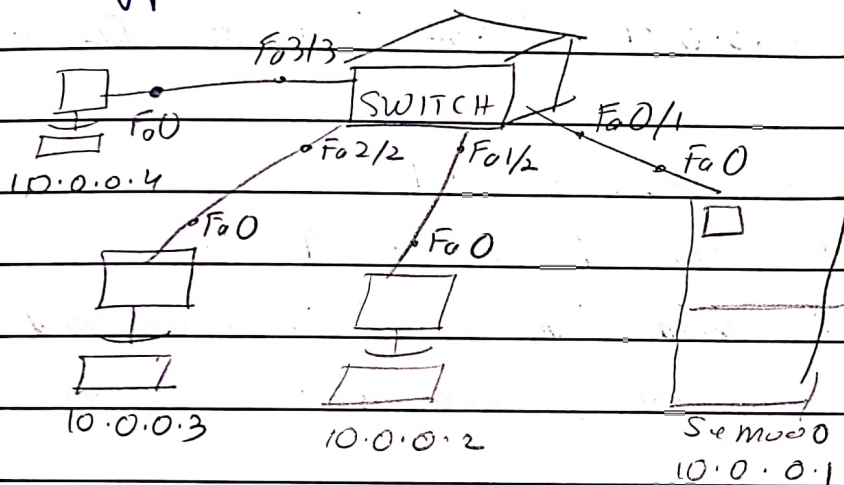 Fa3/3
SWITCH
Fa0
Fa0/1
Fa2/2
Fa1/2
Fa0
10.0.0.4
Fa0
Fa0
10.0.0.3
10.0.0.2
10.0.0.1